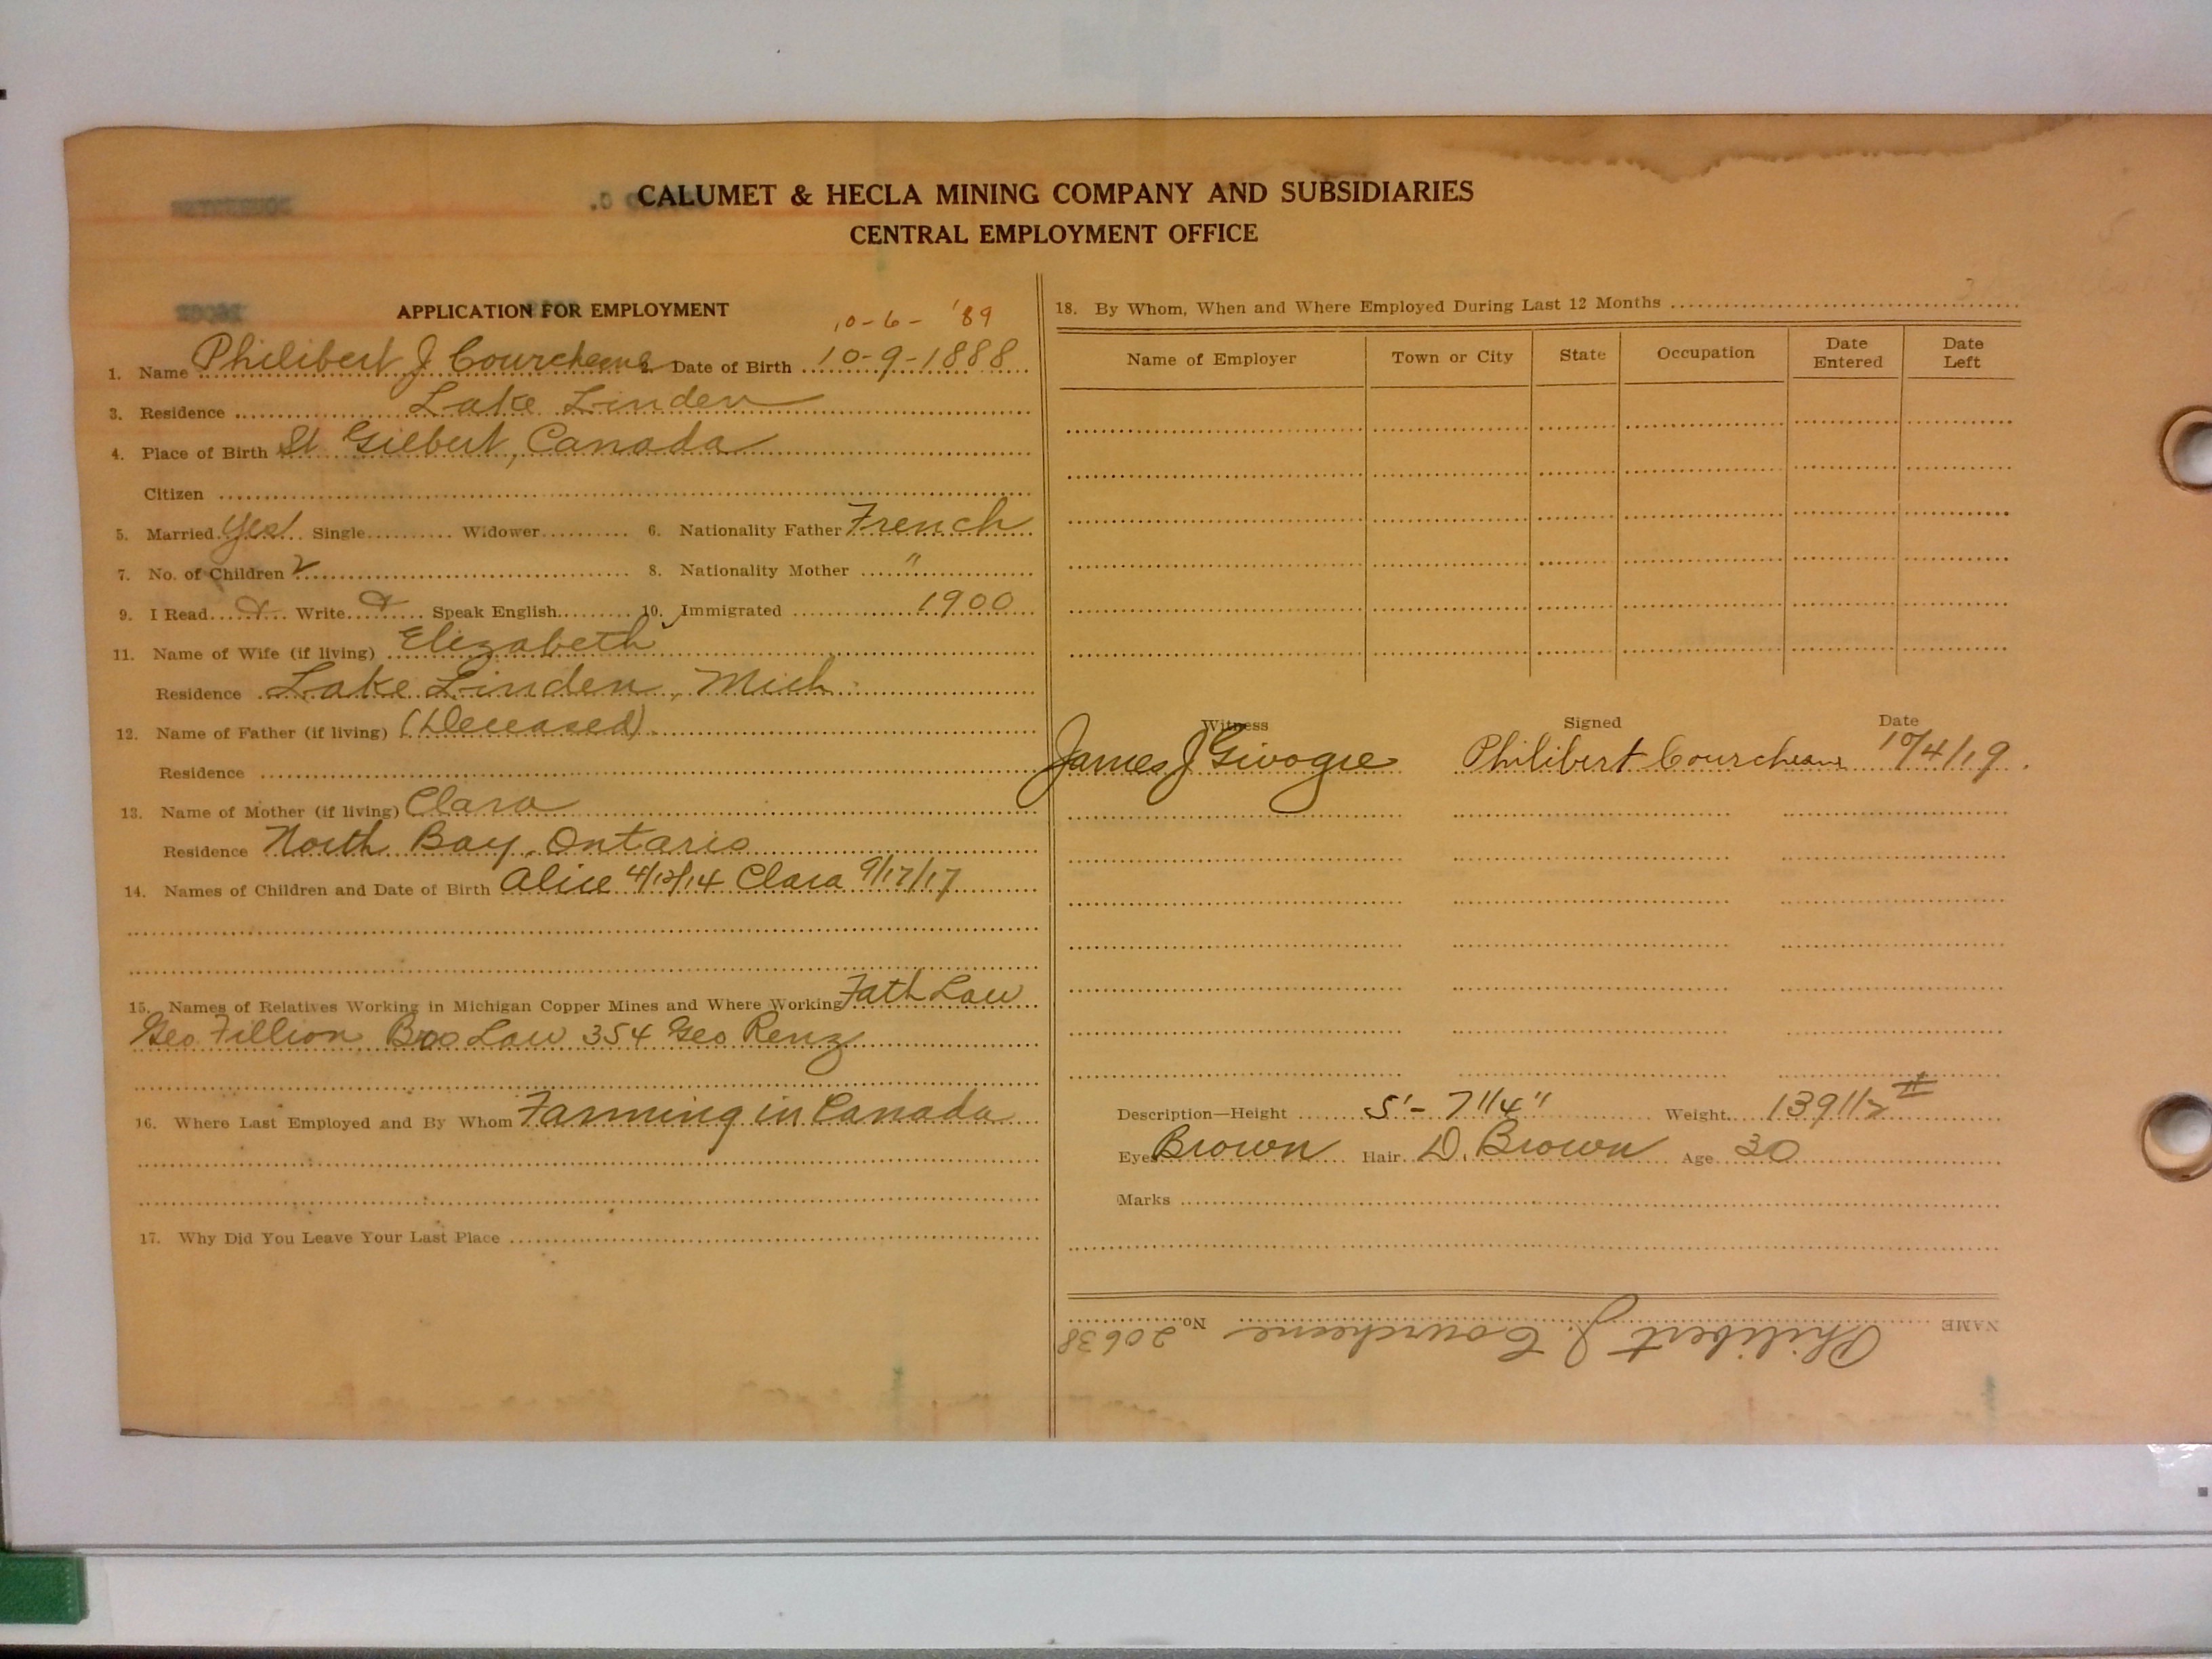 CALUMET & HECLA MINING COMPANY AND SUBSIDIARIES
CENTRAL EMPLOYMENT OFFICE
APPLICATION FOR EMPLOYMENT
10-6-'89
1. Name Philibert J Courchene 2. Date of Birth 10-9-1888
3. Residence Lake Linden
4. Place of Birth St Gilbert, Canada
Citizen
5. Married Yes Single Widower 6. Nationality Father French
7. No. of Children 2 8. Nationality Mother "
9. I Read Write Speak English 10. Immigrated 1900
11. Name of Wife (if living) Elizabeth
Residence Lake Linden, Mich
12. Name of Father (if living) (Deceased)
Residence
13. Name of Mother (if living) Clara
Residence North Bay, Ontario
14. Names of Children and Date of Birth Alice 4/12/14 Clara 9/17/17
15. Names of Relatives Working in Michigan Copper Mines and Where Working Fath Law
Geo Fillion Bro Law 354 Geo Renz
16. Where Last Employed and By Whom Farming in Canada
17. Why Did You Leave Your Last Place
18. By Whom, When and Where Employed During Last 12 Months
Name of Employer Town or City State Occupation Date Entered Date Left
Witness Signed Date
James J Givogre Philibert Courchene 10/4/19.
Description—Height 5'-7 1/4" Weight 139 1/2 #
Eyes Brown Hair D. Brown Age 30
Marks
NAME Philibert J. Courchene No. 20638